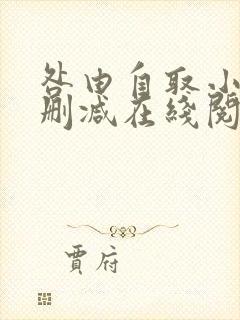 咎由自取小
删减在线阅
贾府